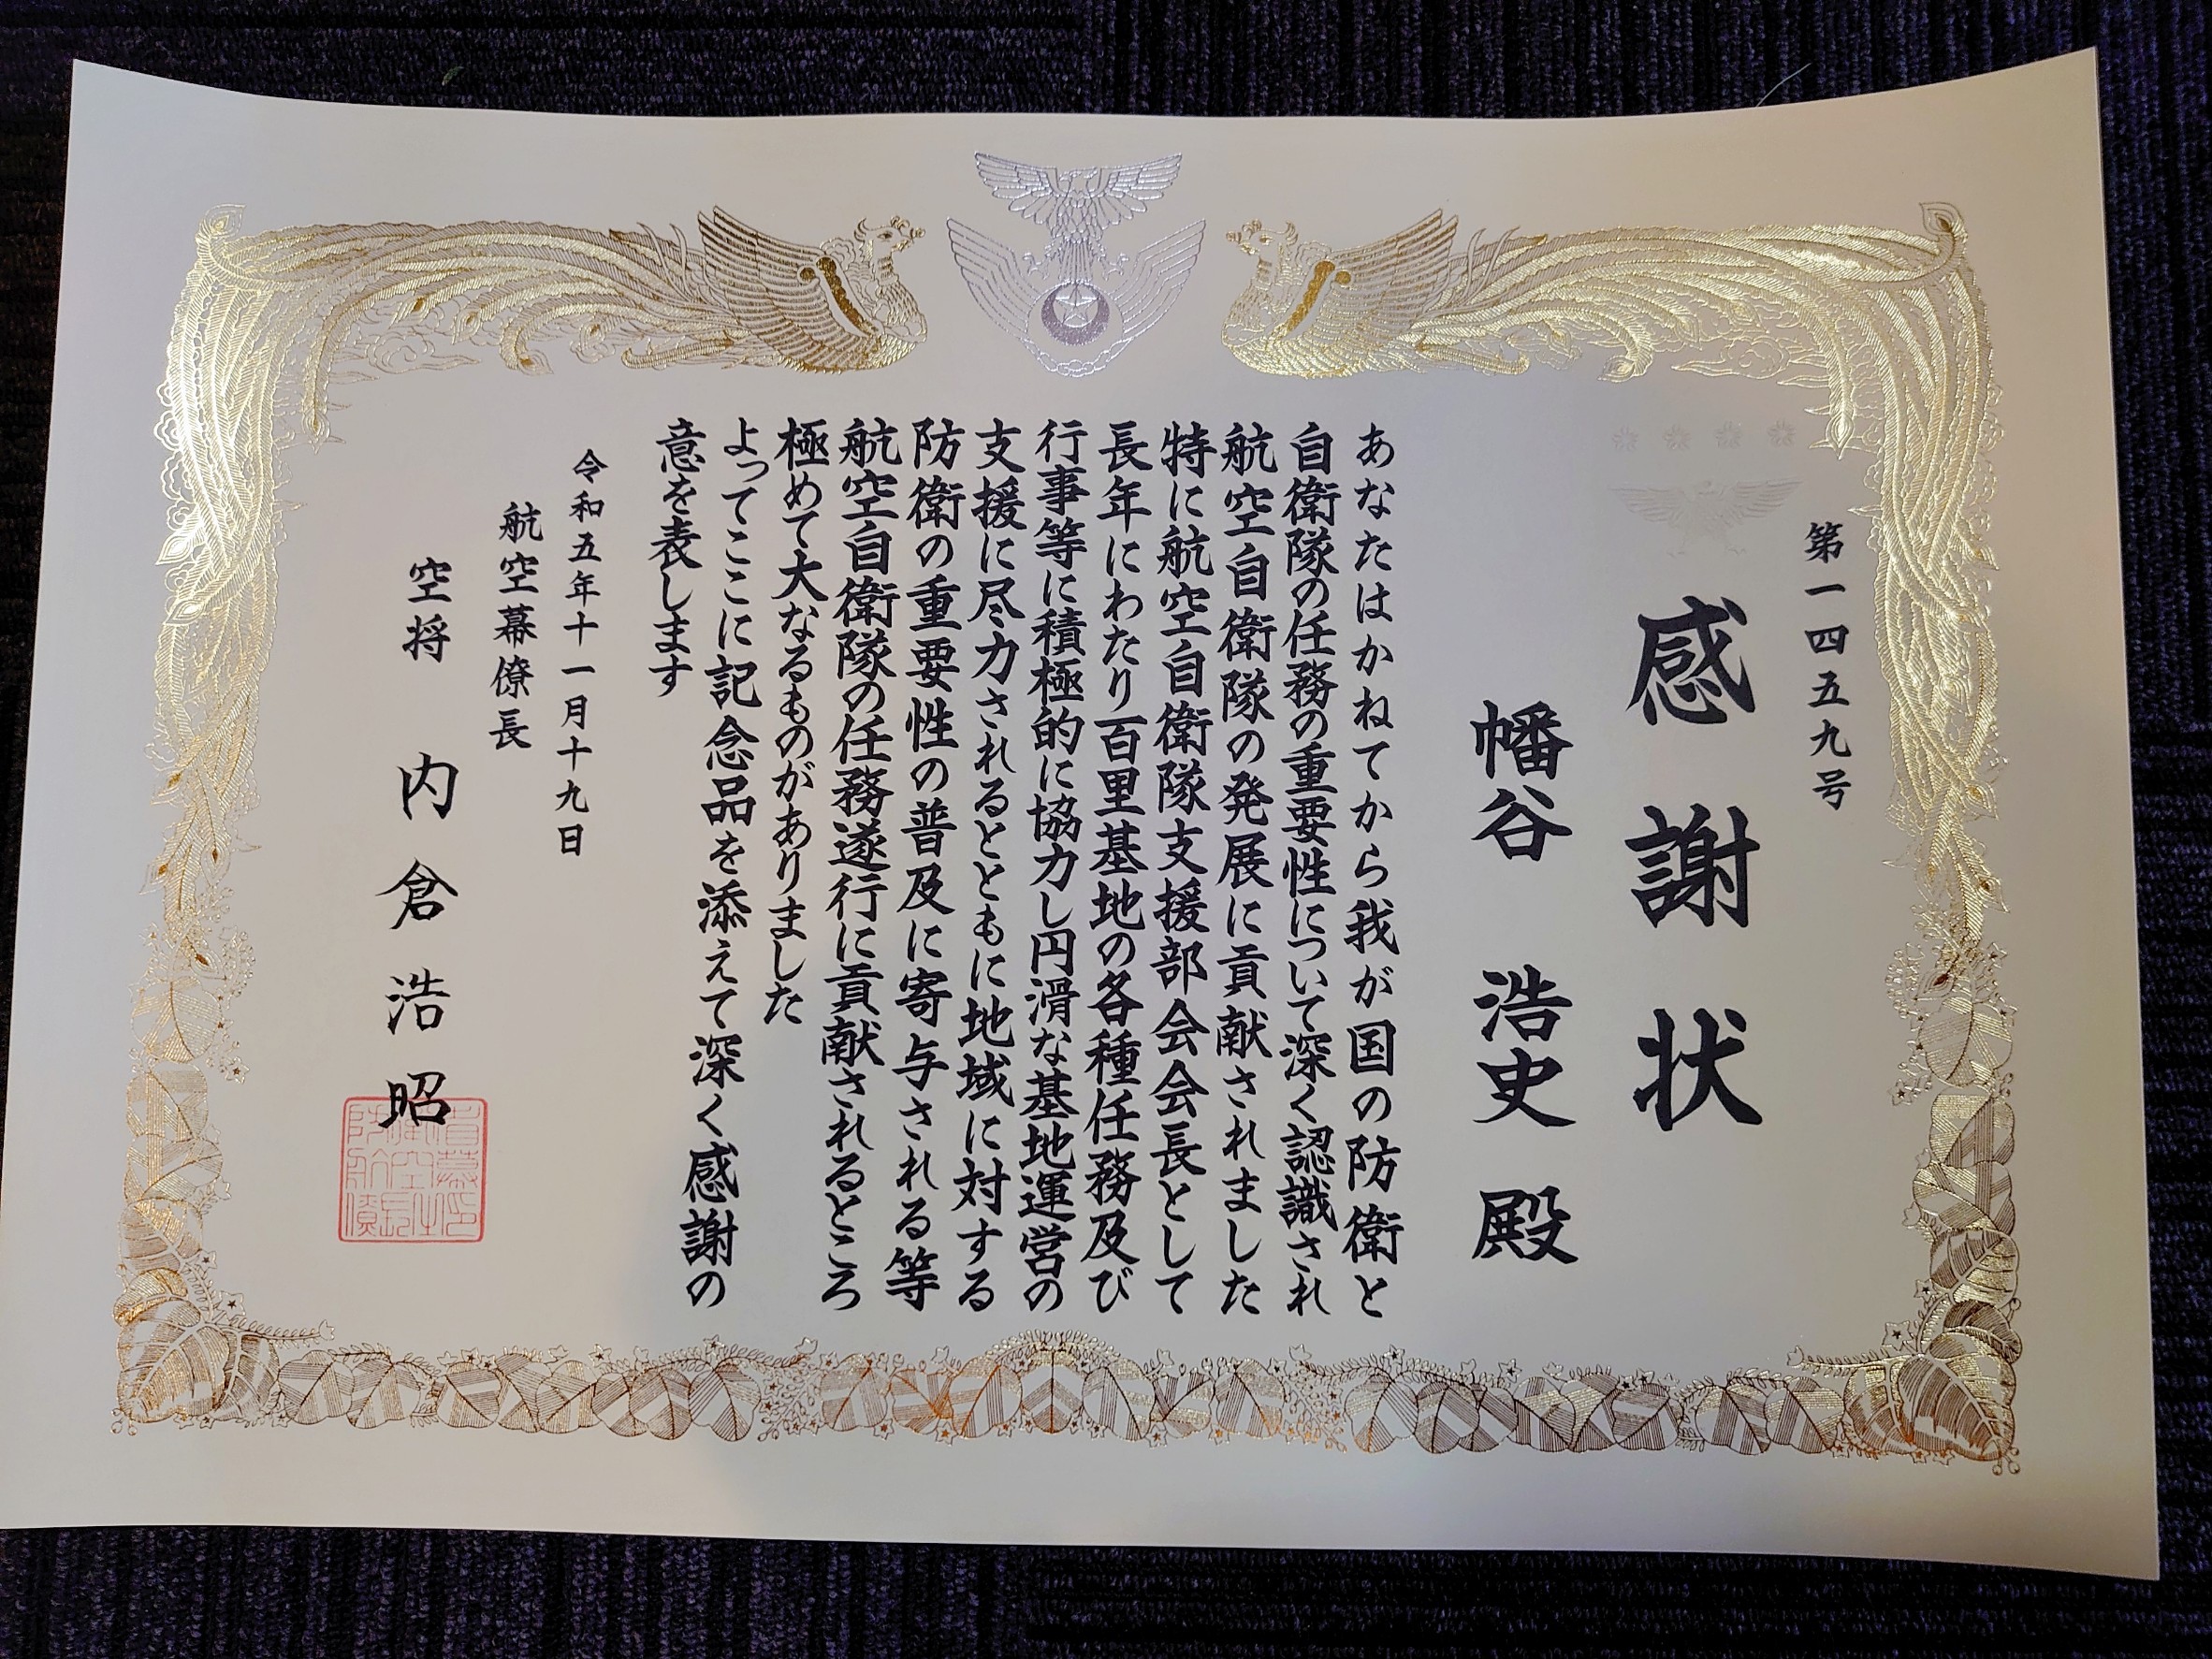 第一四五九号
感謝状
幡谷 浩史 殿
あなたはかねてから我が国の防衛と
自衛隊の任務の重要性について深く認識され
航空自衛隊の発展に貢献されました
特に航空自衛隊支援部会会長として
長年にわたり百里基地の各種任務及び
行事等に積極的に協力し円滑な基地運営の
支援に尽力されるとともに地域に対する
防衛の重要性の普及に寄与される等
航空自衛隊の任務遂行に貢献されるところ
極めて大なるものがありました
よってここに記念品を添えて深く感謝の
意を表します
令和五年十一月十九日
航空幕僚長
空将 内倉浩昭